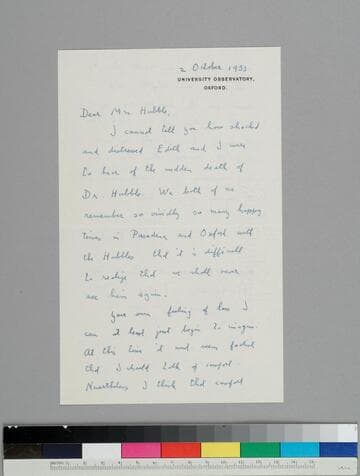 2 October 1953
UNIVERSITY OBSERVATORY,
OXFORD.
Dear Mrs Hubble,
I cannot tell you how shocked
and distressed Edith and I were
to hear of the sudden death of
Dr. Hubble. We both of us
remember so vividly so many happy
times in Pasadena and Oxford with
the Hubbles that it is difficult
to realize that we shall never
see him again.
Your own feeling of loss I
can at least just begin to imagine.
At this time it must seem
that I should talk of comfort.
Nevertheless I think that comfort